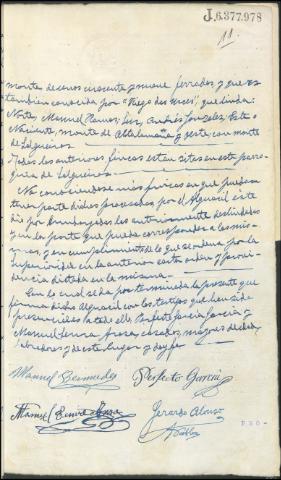 J.6.377.978
11.
monte de unos cincuenta y nueve ferrados, y que es
tambien conocida por "Rego dos
Norte, Manuel Ramos; Sur, Andrés Gonzalez, Este o
Naciente, monte de y Oeste con monte
de Salgueiros
Todas las anteriores fincas estan sitas en esta parro-
quia de Salgueiros
No conociendose mas fincas en que puedan
tener parte dichos procesados por el Alguacil se
dió por las anteriormente deslindadas
y en la parte que pueda corresponder a los mis-
mos, y en cumplimiento de lo que se ordena por la
Superioridad en la anterior carta orden y provi-
dencia dictada en la misma.
Con lo cual se da por terminada la presente que
firma dicho Alguacil con los testigos que han sido
presenciales de ella Perfecto Garcia Garcia y
Manuel casados, mayores de edad,
labradores y de este lugar y doy fe
Manuel Bermudez Perfecto Garcia
Manuel Gerardo Alonso